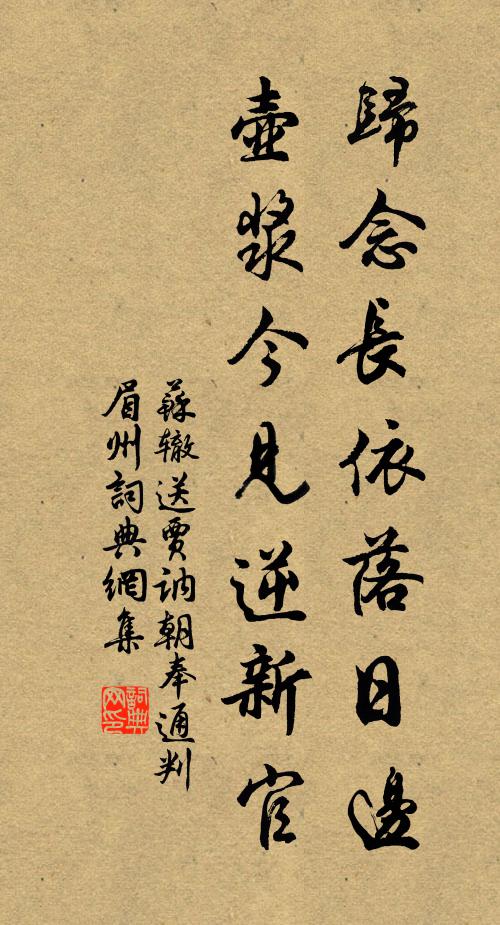 歸念長依落日邊
壺漿今見逆新官
蘇辙送賈訥朝奉通判
眉州詞典網集
詞典網印